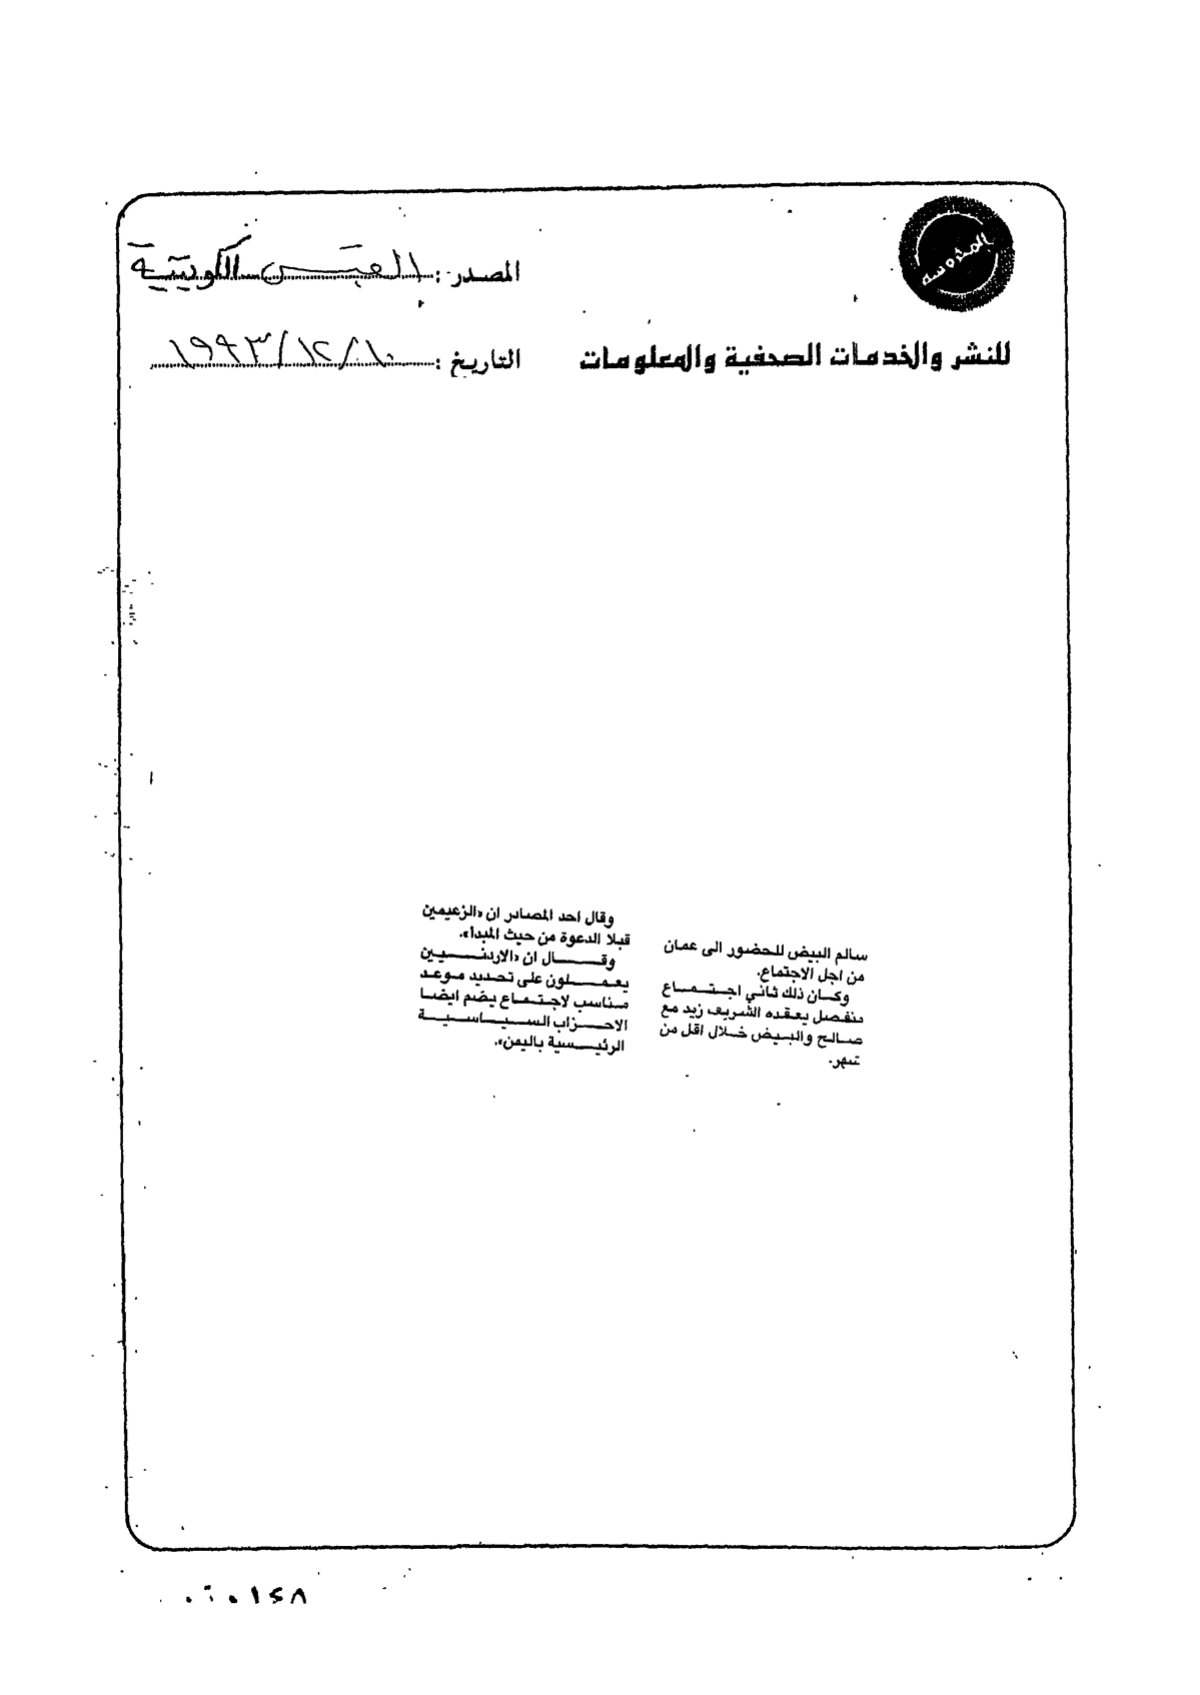 المدوسة
المصدر : القبس الكويتية
للنشر والخدمات الصحفية والمعلومات
التاريخ : ١٠/١٢/١٩٩٣
سالم البيض للحضور الى عمان
من اجل الاجتماع.
وكان ذلك ثاني اجتماع
منفصل يعقده الشريف زيد مع
صالح والبيض خلال اقل من
شهر.
وقال احد المصادر ان «الزعيمين
قبلا الدعوة من حيث المبدا».
وقال ان «الاردنيين
يعملون على تحديد موعد
مناسب لاجتماع يضم ايضا
الاحزاب السياسية
الرئيسية باليمن».